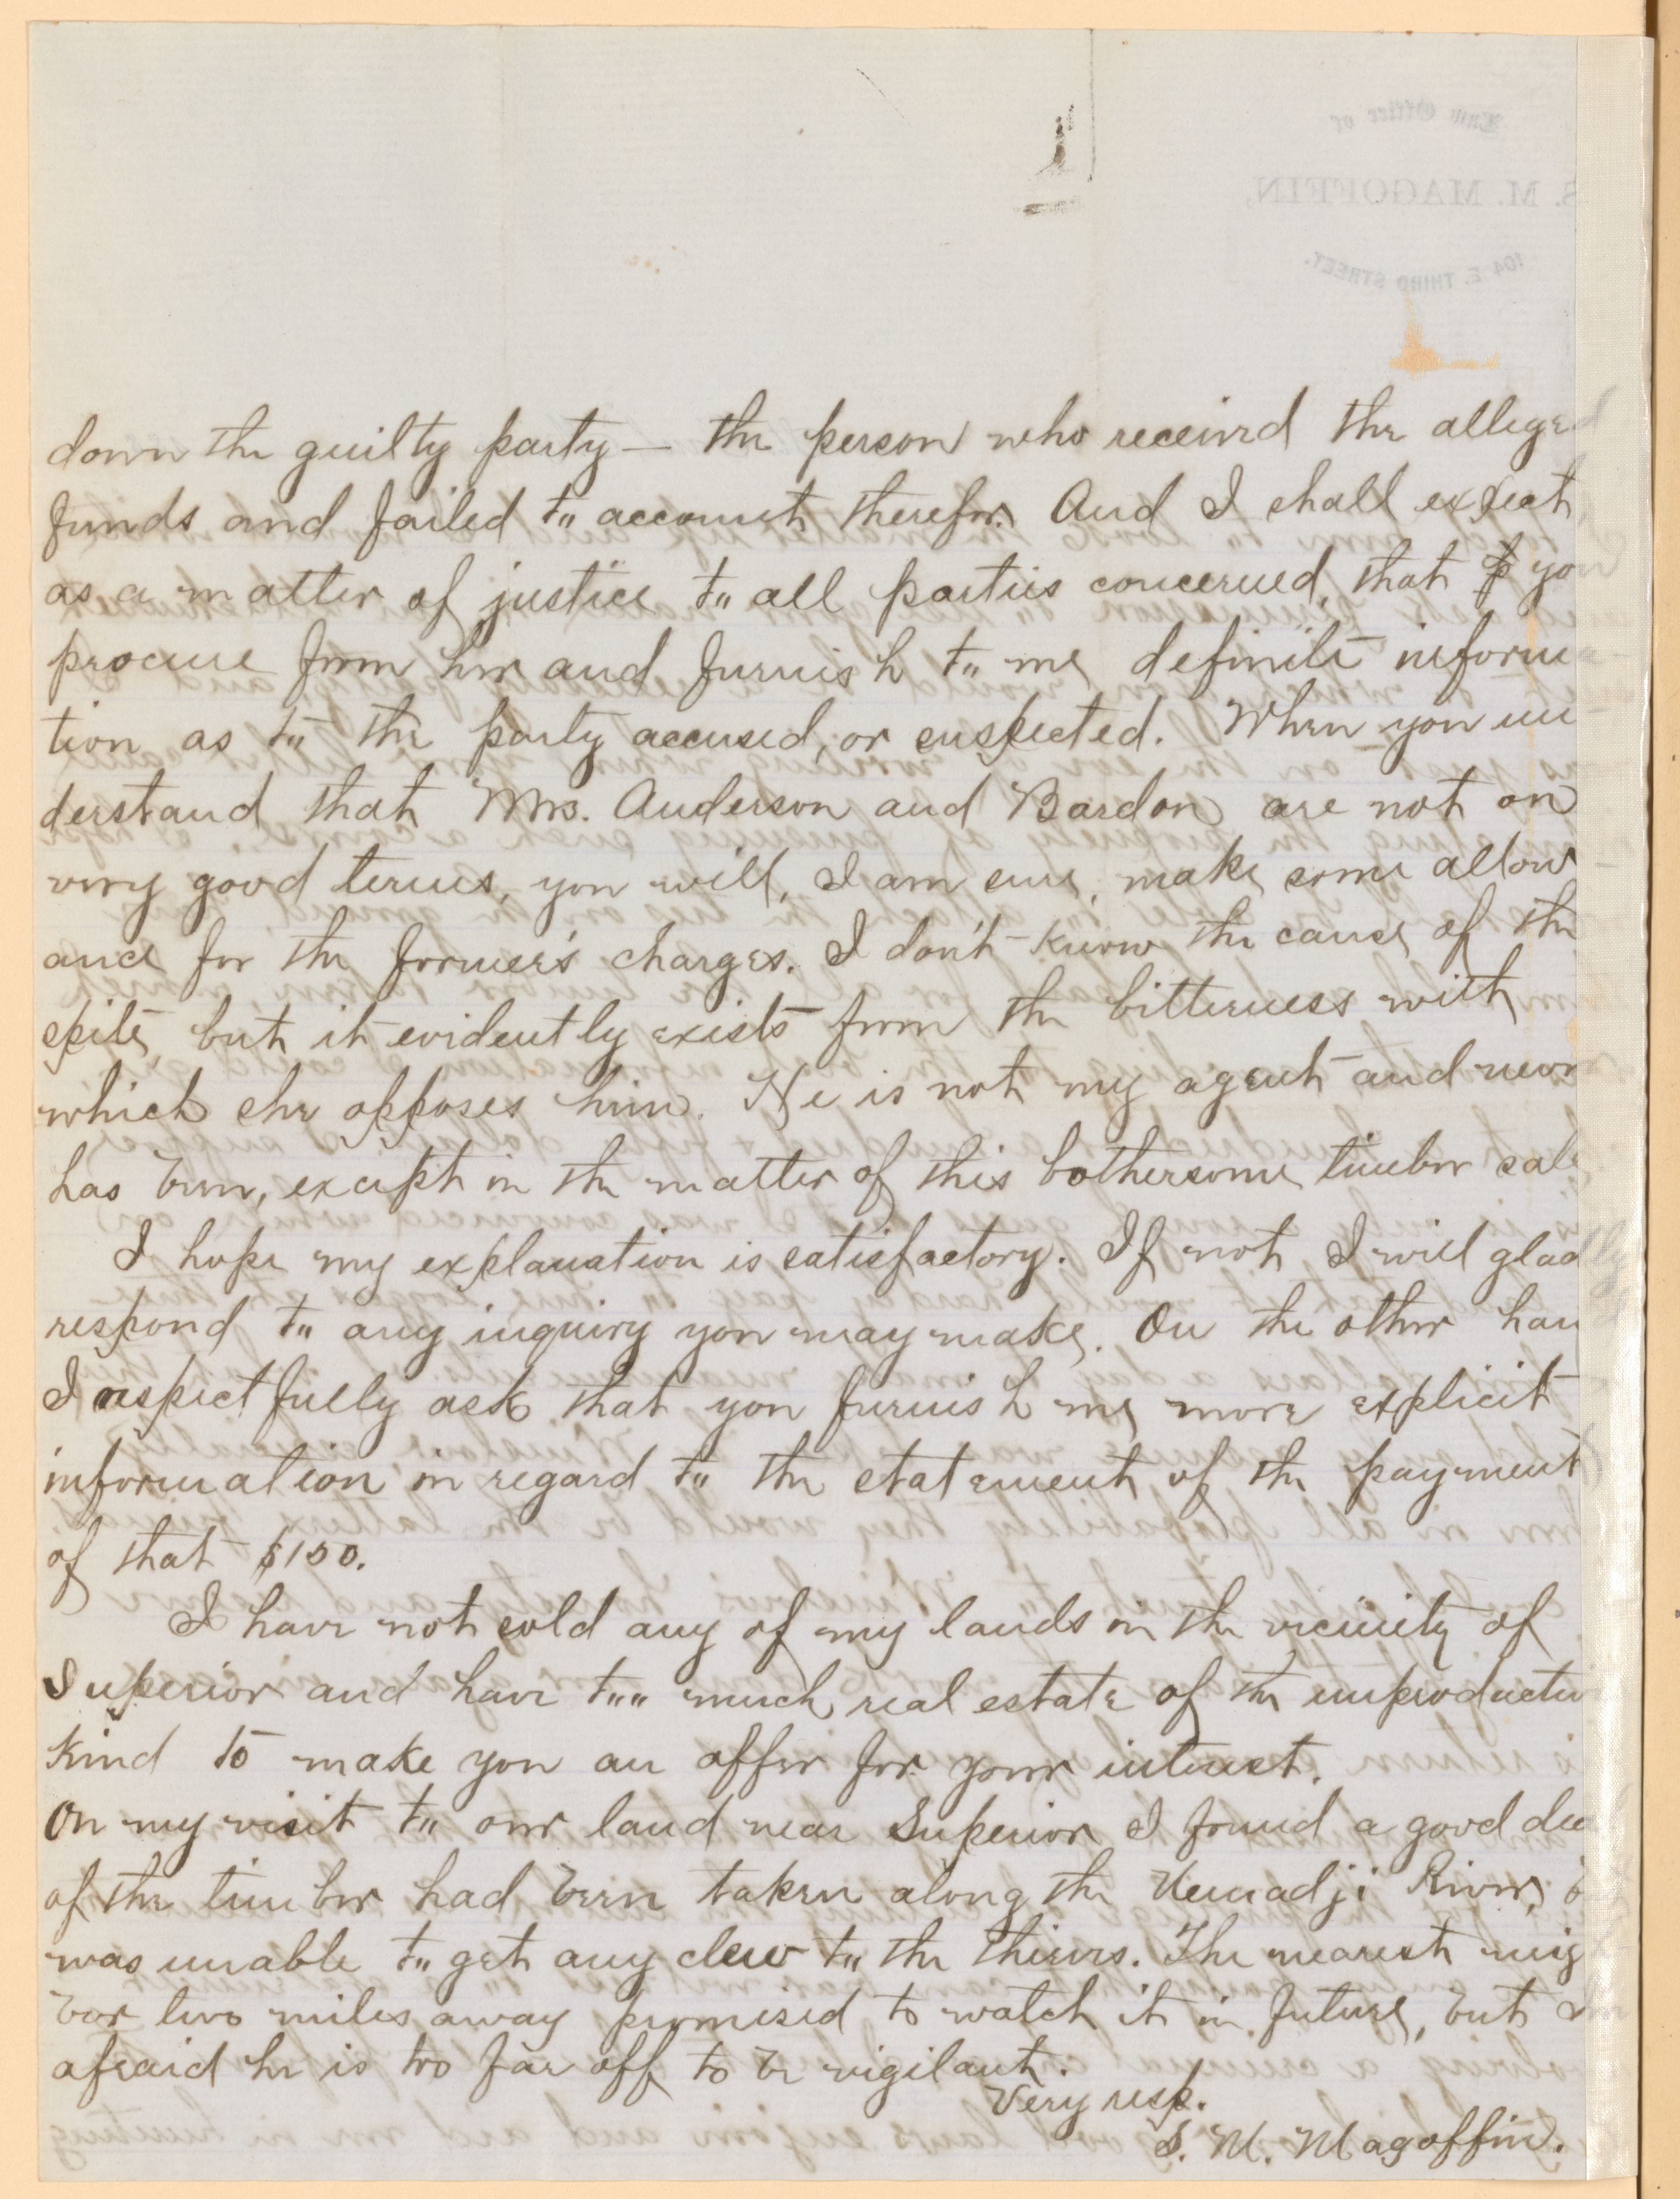 Law Office of
S. M. MAGOFFIN,
104 E. THIRD STREET.
down the guilty party — the person who received the alleged
funds and failed to account therefor. And I shall expect,
as a matter of justice to all parties concerned, that you
procure from her and furnish to me definite informa
tion as to the party accused, or suspected. When you un
derstand that Mrs. Anderson and Bardon are not on
very good terms, you will, I am sure, make some allow
ance for the former's charges. I don't know the cause of the
spite, but it evidently exists from the bitterness with
which she opposes him. He is not my agent and never
has been, except in the matter of this bothersome timber sale
I hope my explanation is satisfactory. If not I will gladly
respond to any inquiry you may make. On the other han
I respectfully ask that you furnish me more explicit
information in regard to the statement of the payment
of that $150.
I have not sold any of my lands in the vicinity of
Superior and have too much real estate of the unproductiv
kind to make you an offer for your interest.
On my visit to our land near Superior I found a good dea
of the timber had been taken along the Nemadji River, b
was unable to get any clew to the thieves. The nearest neig
bor two miles away promised to watch it in future, but I
afraid he is too far off to be vigilant.
Very resp.
S. M. Magoffin.